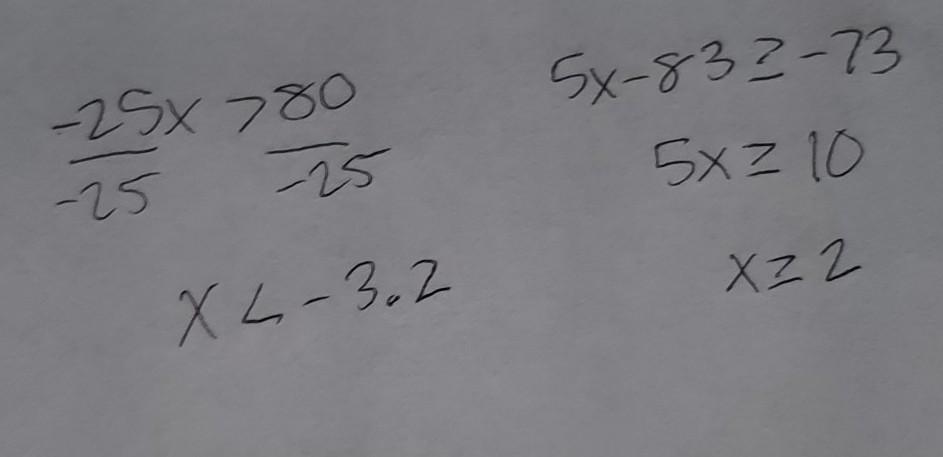 -25x > 80
-25 -25
x < -3.2
5x - 83 ≥ -73
5x ≥ 10
x ≥ 2